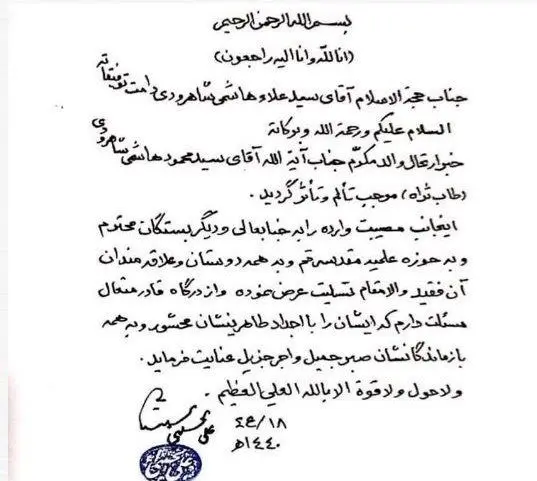 بسم الله الرحمن الرحیم
(انا لله و انا الیه راجعون)
جناب حجة الاسلام آقای سید علاء هاشمی شاهرودی دامت توفیقاته
السلام علیکم ورحمة الله وبرکاتة
خبر ارتحال والد مکرّم جناب آیة الله آقای سید محمود هاشمی شاهرودی
(طاب ثراه) موجب تألم وتأثر گردید .
اینجانب مصیبت وارده را به جنابعالی و دیگر بستگان محترم
و به حوزه علمیه مقدسه قم و به همه دوستان وعلاقه مندان
آن فقید والامقام تسلیت عرض نموده واز درگاه قادر متعال
مسئلت دارم که ایشان را با اجداد طاهرینشان محشور و به همه
بازماندگانشان صبر جمیل واجر جزیل عنایت فرماید .
ولاحول ولا قوة الا بالله العلی العظیم .
علی الحسینی السیستانی
١٨/ع٢
١٤٤٠هـ